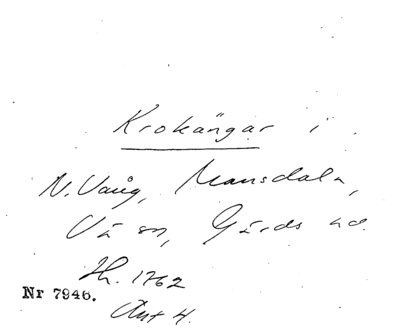 Krokängar i
N. Vång, Mansdala,
Vå sn, Gärds hd.
Th. 1762
Nr 7946.
Akt 4.